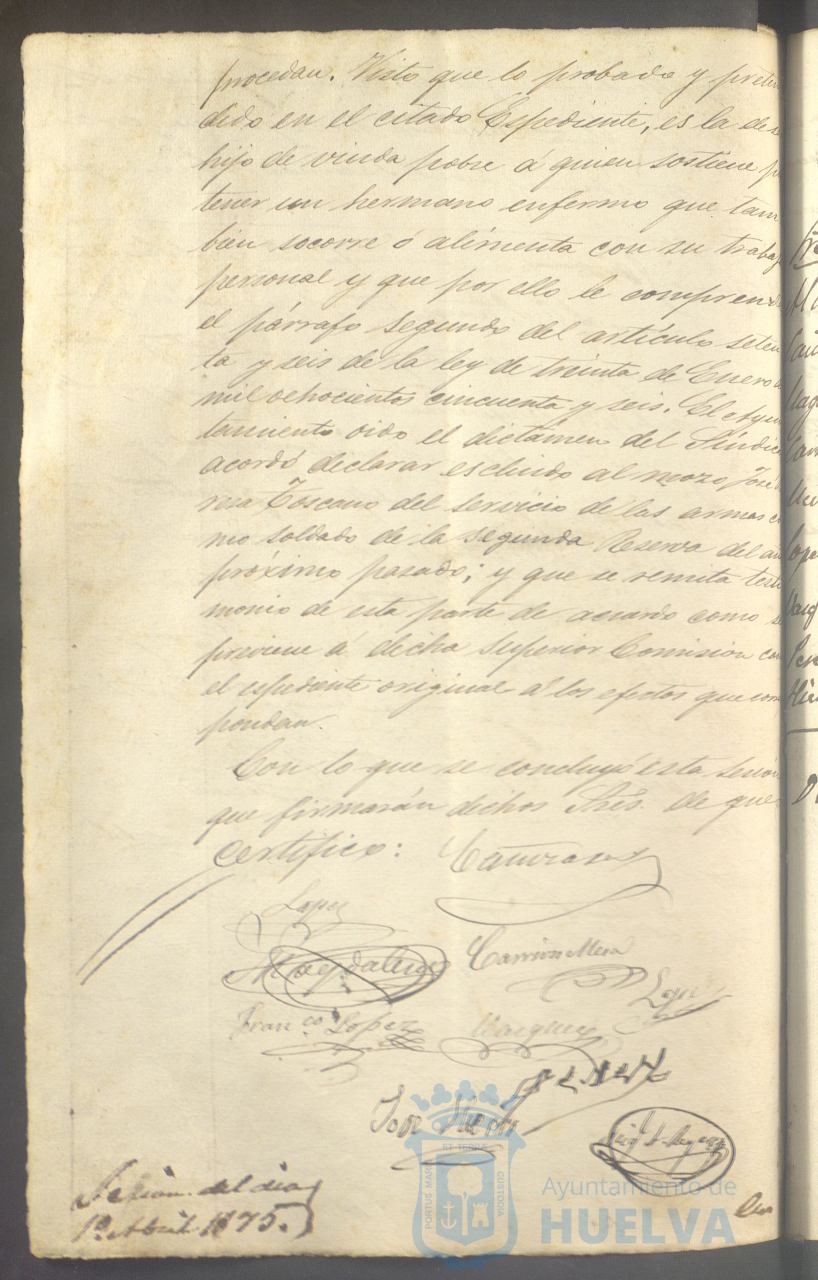 procedan. Visto que lo probado y preten
dido en el citado Espediente, es la de s
hijo de viuda pobre á quien sostiene p
tener un hermano enfermo que tam
bien socorre ó alimenta con su trabaj
personal y que por ello le comprende
el párrafo segundo del artículo seten
ta y seis de la ley de treinta de Enero d
mil ochocientos cincuenta y seis. El Ayun
tamiento oido el dictámen del Síndico
acordó declarar escluido al mozo José
Toscano del servicio de las armas co
mo soldado de la segunda Reserva del año
próximo pasado; y que se remita testi
monio de esta parte de acuerdo como se
previene á dicha Superior Comision con
el espediente original á los efectos que corres
pondan.
Con lo que se concluyó esta sesion
que firmarán dichos Sres. de que
Certifico:
Lopez
Magdaleno
Carrion Mesa
Lopez
Franco. Lopez
Vazquez
José
Sesion del dia
1º. Abril 1875.
PORTUS MARIS
ET TERRÆ
CUSTODIA
Ayuntamiento de
HUELVA